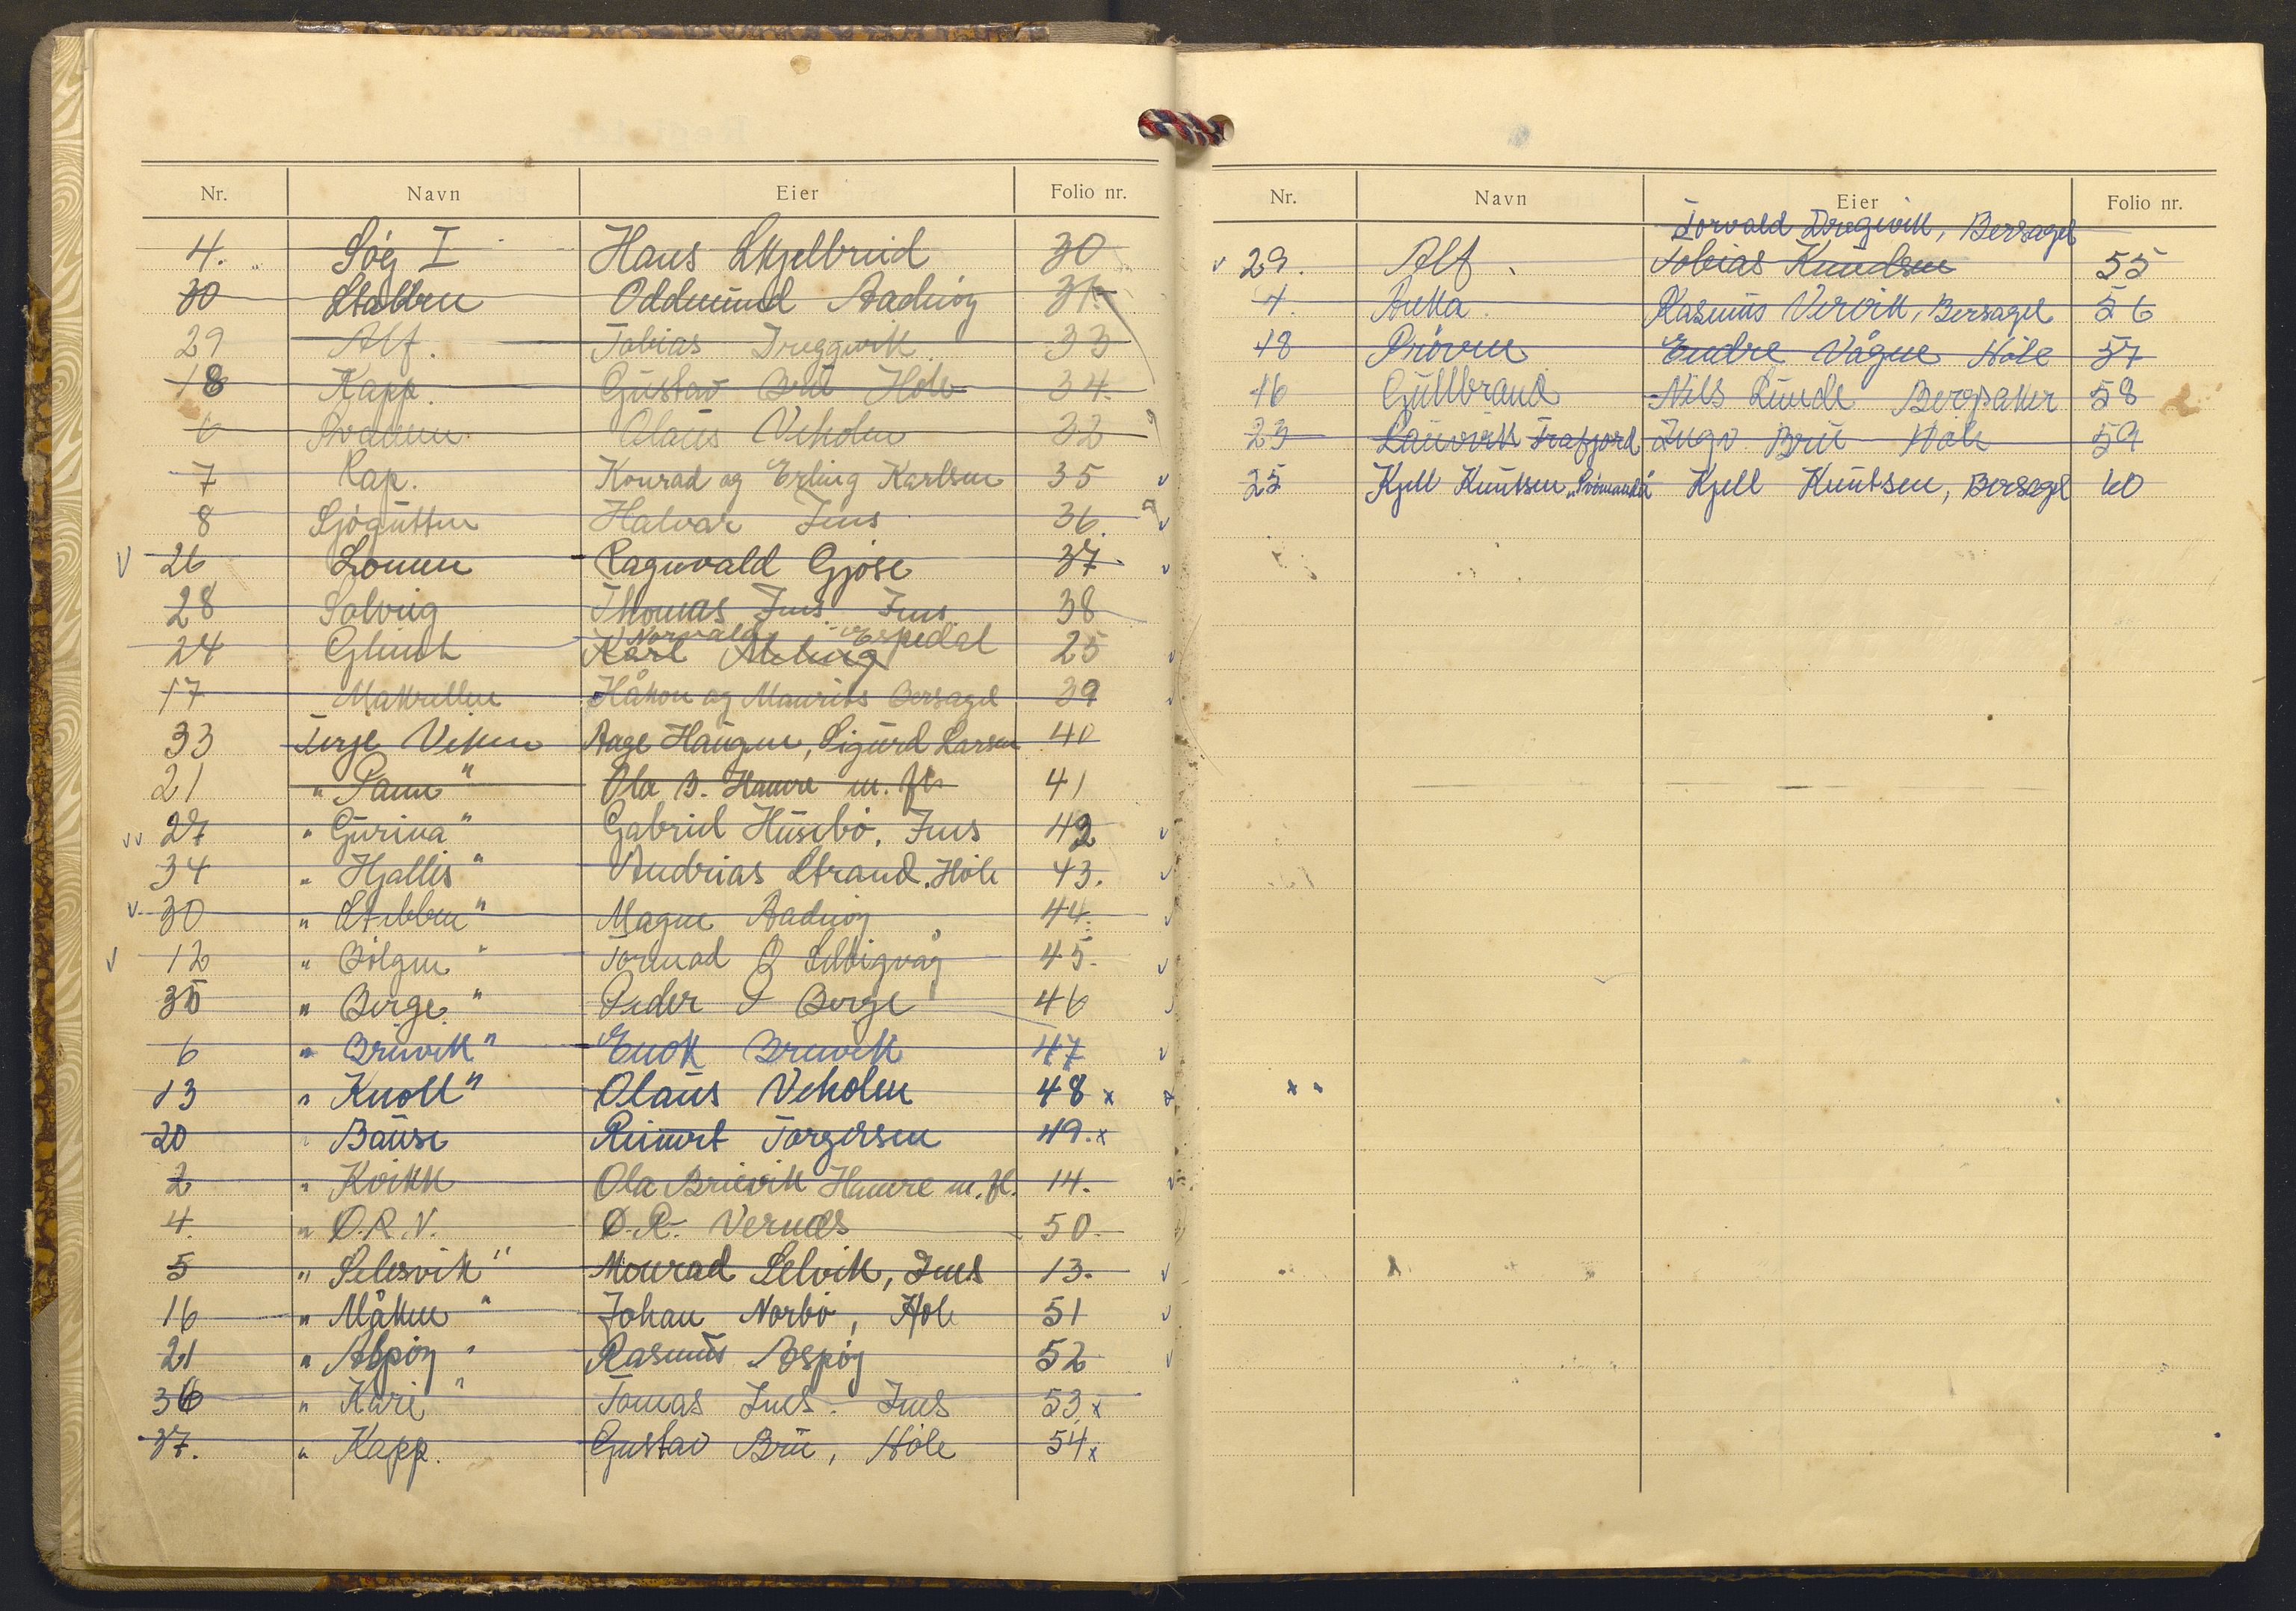 Nr. Navn Eier Folio nr.
4. Søg I Hans Skjelbreid 30
30 Stabben Oddmund Aadnøy 31
29 Alf. Tobias Dreggvik 33
18 Kapp. Gustav Brü Høle 34.
6 Svanen Olaus Veholm 32
7 Rap. Konrad og Erling Karlsen 35 v
8 Sjøgutten Halvar Ims 36. v
v 26 Lomen Ragnvald Gjøse 37. v
28 Solveig Thomas Ims. Ims. 38
Norvald Espedal
24 Glimt Karl 25 v
17 Makrellen Håkon og Maurits Bersagel 39
33 Terje Viken Aage Haugen, Sigurd Larsen 40
21 " Pann " Ola B. Hamre m. fl. 41
vv 27 " Gurina " Gabriel Husebø, Ims 42 v
34 " Hjallis " Andrias Strand. Høle 43. v
v 30 " Stebben " Magne Aadnøy 44. v
v 12 " Bølgen " Tormod O Selvigvåg 45. v
35 " Berge " Peder P Berge 46 v
6 " Breivik " Enok Breivik 47 v
13 " Knoll " Olaus Veholm 48 x x
20 " Bause Reinert Torgersen 49. x
2 " Kvikk Ola Breivik Hamre m. fl. 14. v
4. " O.R.V. O.R. Vernes 50.
5 " Selesvik " Monrad Selvik, Ims 13. v
16 " Måken " Johan Norbø, Høle 51 v
21 " Aspøy " Rasmus Aspøy 52 v
36 " Kari " Tomas Ims. Ims 53 x
37. " Kapp. Gustav Brü, Høle 54 x
Nr. Navn Eier Folio nr.
Torvald Dregivik, Bersagel
v 29. Alf. Tobias Knudsen 55
4. Anka. Rasmus Vervik, Bersagel 56
18 Prøven Endre Vågne Høle 57
16 Gullbrand Nils Lunde Bergsaker 58
23 Lauvvik Frafjord Ingv. Brü Høle 59
25 Kjell Knutsen „Svømanda" Kjell Knutsen, Bersagel 60
x "